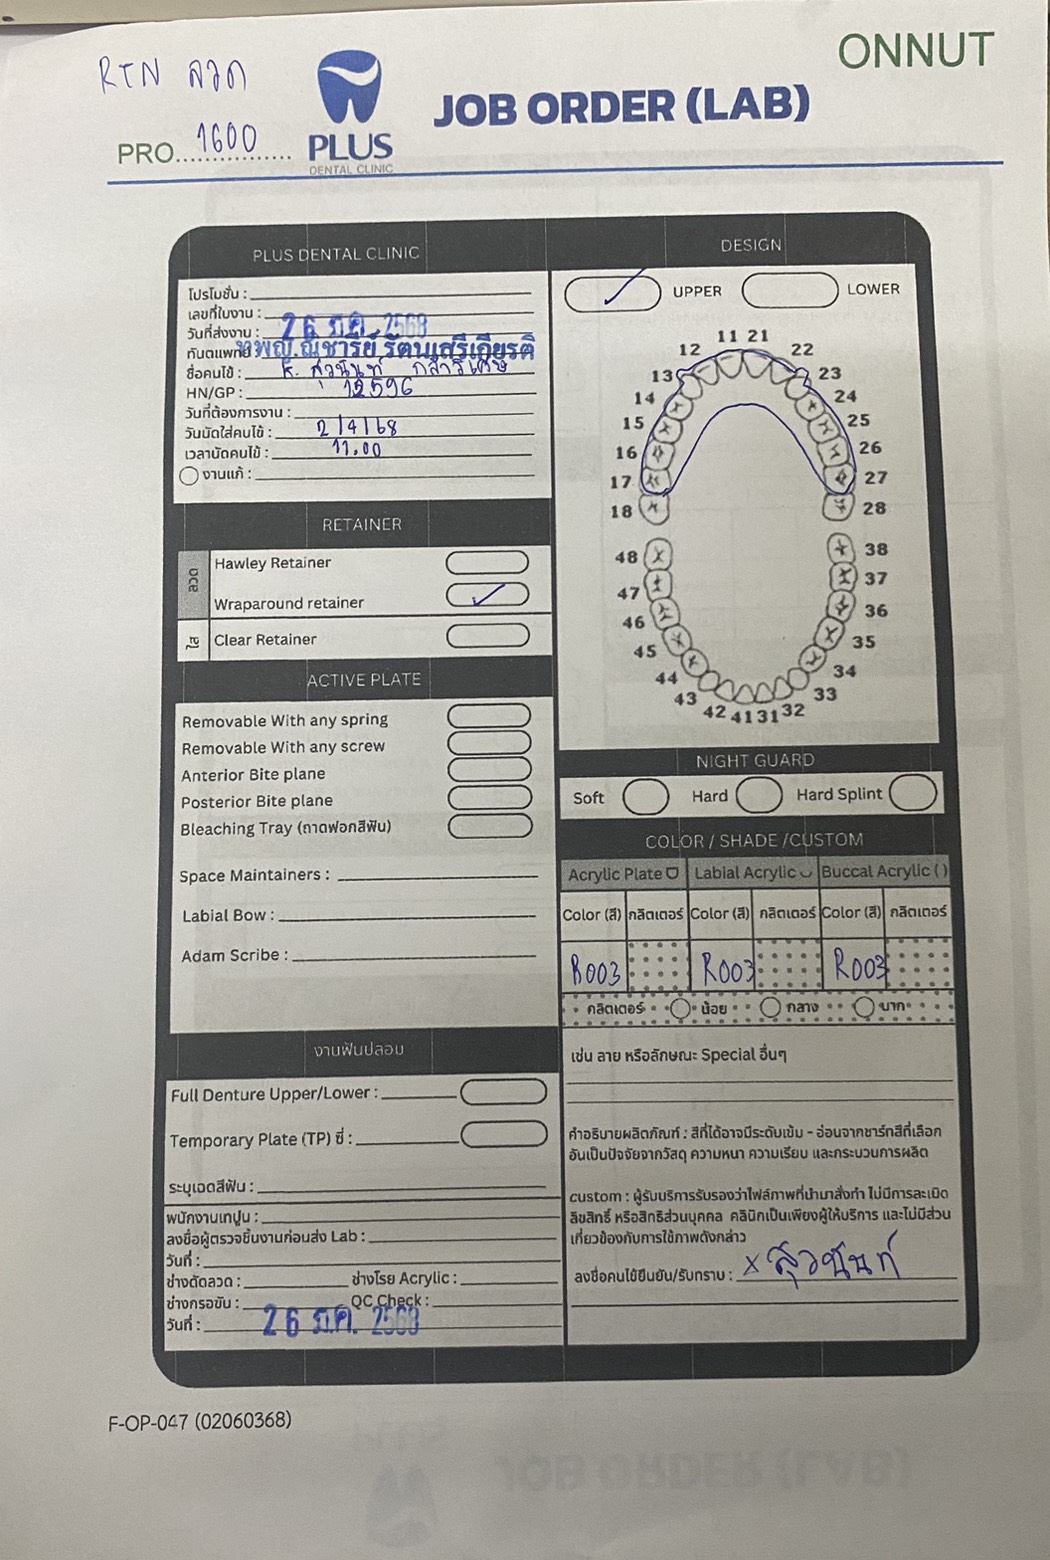 RTN ลวด
ONNUT
PRO. 1600
PLUS
DENTAL CLINIC
JOB ORDER (LAB)
PLUS DENTAL CLINIC
โปรโมชั่น :
เลขที่ใบงาน :
วันที่ส่งงาน : 26 มี.ค. 2568
ทันตแพทย์ : ทพญ.ณิชารีย์ รัตนเสรีเกียรติ
ชื่อคนไข้ : K. สุวนันท์
HN/GP : 12596
วันที่ต้องการงาน :
วันนัดใส่คนไข้ : 2/4/68
เวลานัดคนไข้ : 11.00
งานแก้ :
RETAINER
ลวด
Hawley Retainer
Wraparound retainer
ใส
Clear Retainer
ACTIVE PLATE
Removable With any spring
Removable With any screw
Anterior Bite plane
Posterior Bite plane
Bleaching Tray (ถาดฟอกสีฟัน)
Space Maintainers :
Labial Bow :
Adam Scribe :
งานฟันปลอม
Full Denture Upper/Lower :
Temporary Plate (TP) ซี่ :
ระบุเฉดสีฟัน :
พนักงานเทปูน :
ลงชื่อผู้ตรวจชิ้นงานก่อนส่ง Lab :
วันที่ :
ช่างดัดลวด : ช่างโรย Acrylic :
ช่างกรอขัน : QC Check :
วันที่ : 26 มี.ค. 2568
DESIGN
UPPER LOWER
11 21
12 22
13 23
14 24
15 25
16 26
17 27
18 28
48 38
47 37
46 36
45 35
44 34
43 33
42 41 31 32
NIGHT GUARD
Soft Hard Hard Splint
COLOR / SHADE /CUSTOM
Acrylic Plate Labial Acrylic Buccal Acrylic ( )
Color (สี) กลิตเตอร์ Color (สี) กลิตเตอร์ Color (สี) กลิตเตอร์
R003 R003 R003
กลิตเตอร์ น้อย กลาง มาก
เช่น ลาย หรือลักษณะ Special อื่นๆ
คำอธิบายผลิตภัณฑ์ : สีที่ได้อาจมีระดับเข้ม - อ่อนจากชาร์ทสีที่เลือก
อันเป็นปัจจัยจากวัสดุ ความหนา ความเรียบ และกระบวนการผลิต
custom : ผู้รับบริการรับรองว่าไฟล์ภาพที่นำมาสั่งทำ ไม่มีการละเมิด
ลิขสิทธิ์ หรือสิทธิส่วนบุคคล คลินิกเป็นเพียงผู้ให้บริการ และไม่มีส่วน
เกี่ยวข้องกับการใช้ภาพดังกล่าว
ลงชื่อคนไข้ยืนยัน/รับทราบ : x สุวนันท์
F-OP-047 (02060368)